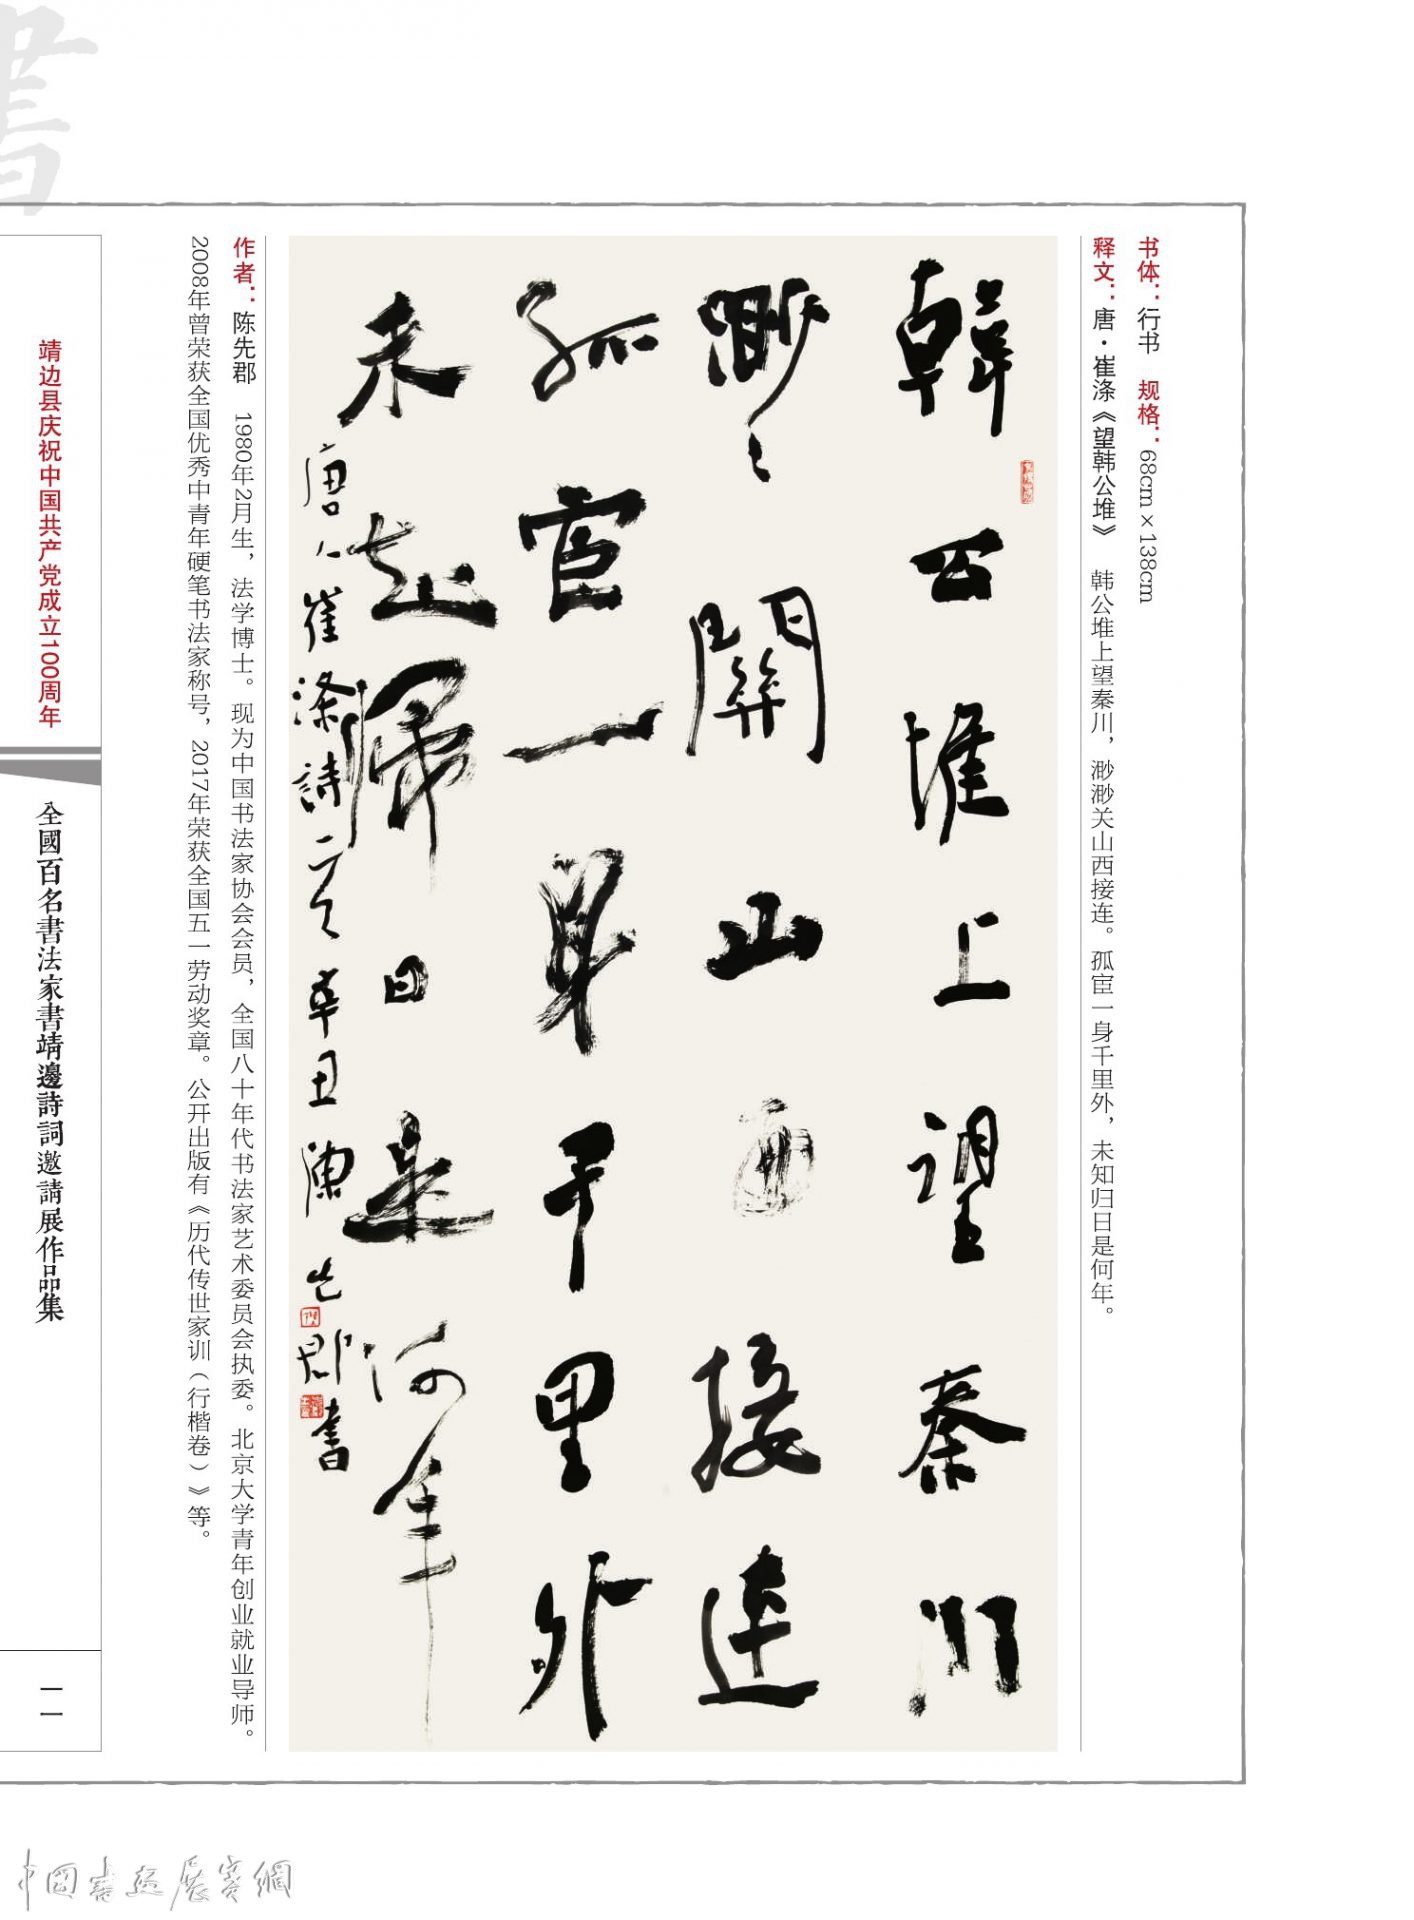 書
书体：行书　规格：68cm×138cm
释文：唐·崔涤《望韩公堆》　韩公堆上望秦川，渺渺关山西接连。孤宦一身千里外，未知归日是何年。
韓公堆上望秦川
渺〻關山西接連
孤宦一身千里外
未知歸日是何年
唐人崔涤詩一首辛丑陳先郡書
作者：陈先郡　1980年2月生，法学博士。现为中国书法家协会会员，全国八十年代书法家艺术委员会执委。北京大学青年创业就业导师。
2008年曾荣获全国优秀中青年硬笔书法家称号，2017年荣获全国五一劳动奖章。公开出版有《历代传世家训（行楷卷）》等。
靖边县庆祝中国共产党成立100周年
全國百名書法家書靖邊詩詞邀請展作品集
一一
中國書畫展賽網